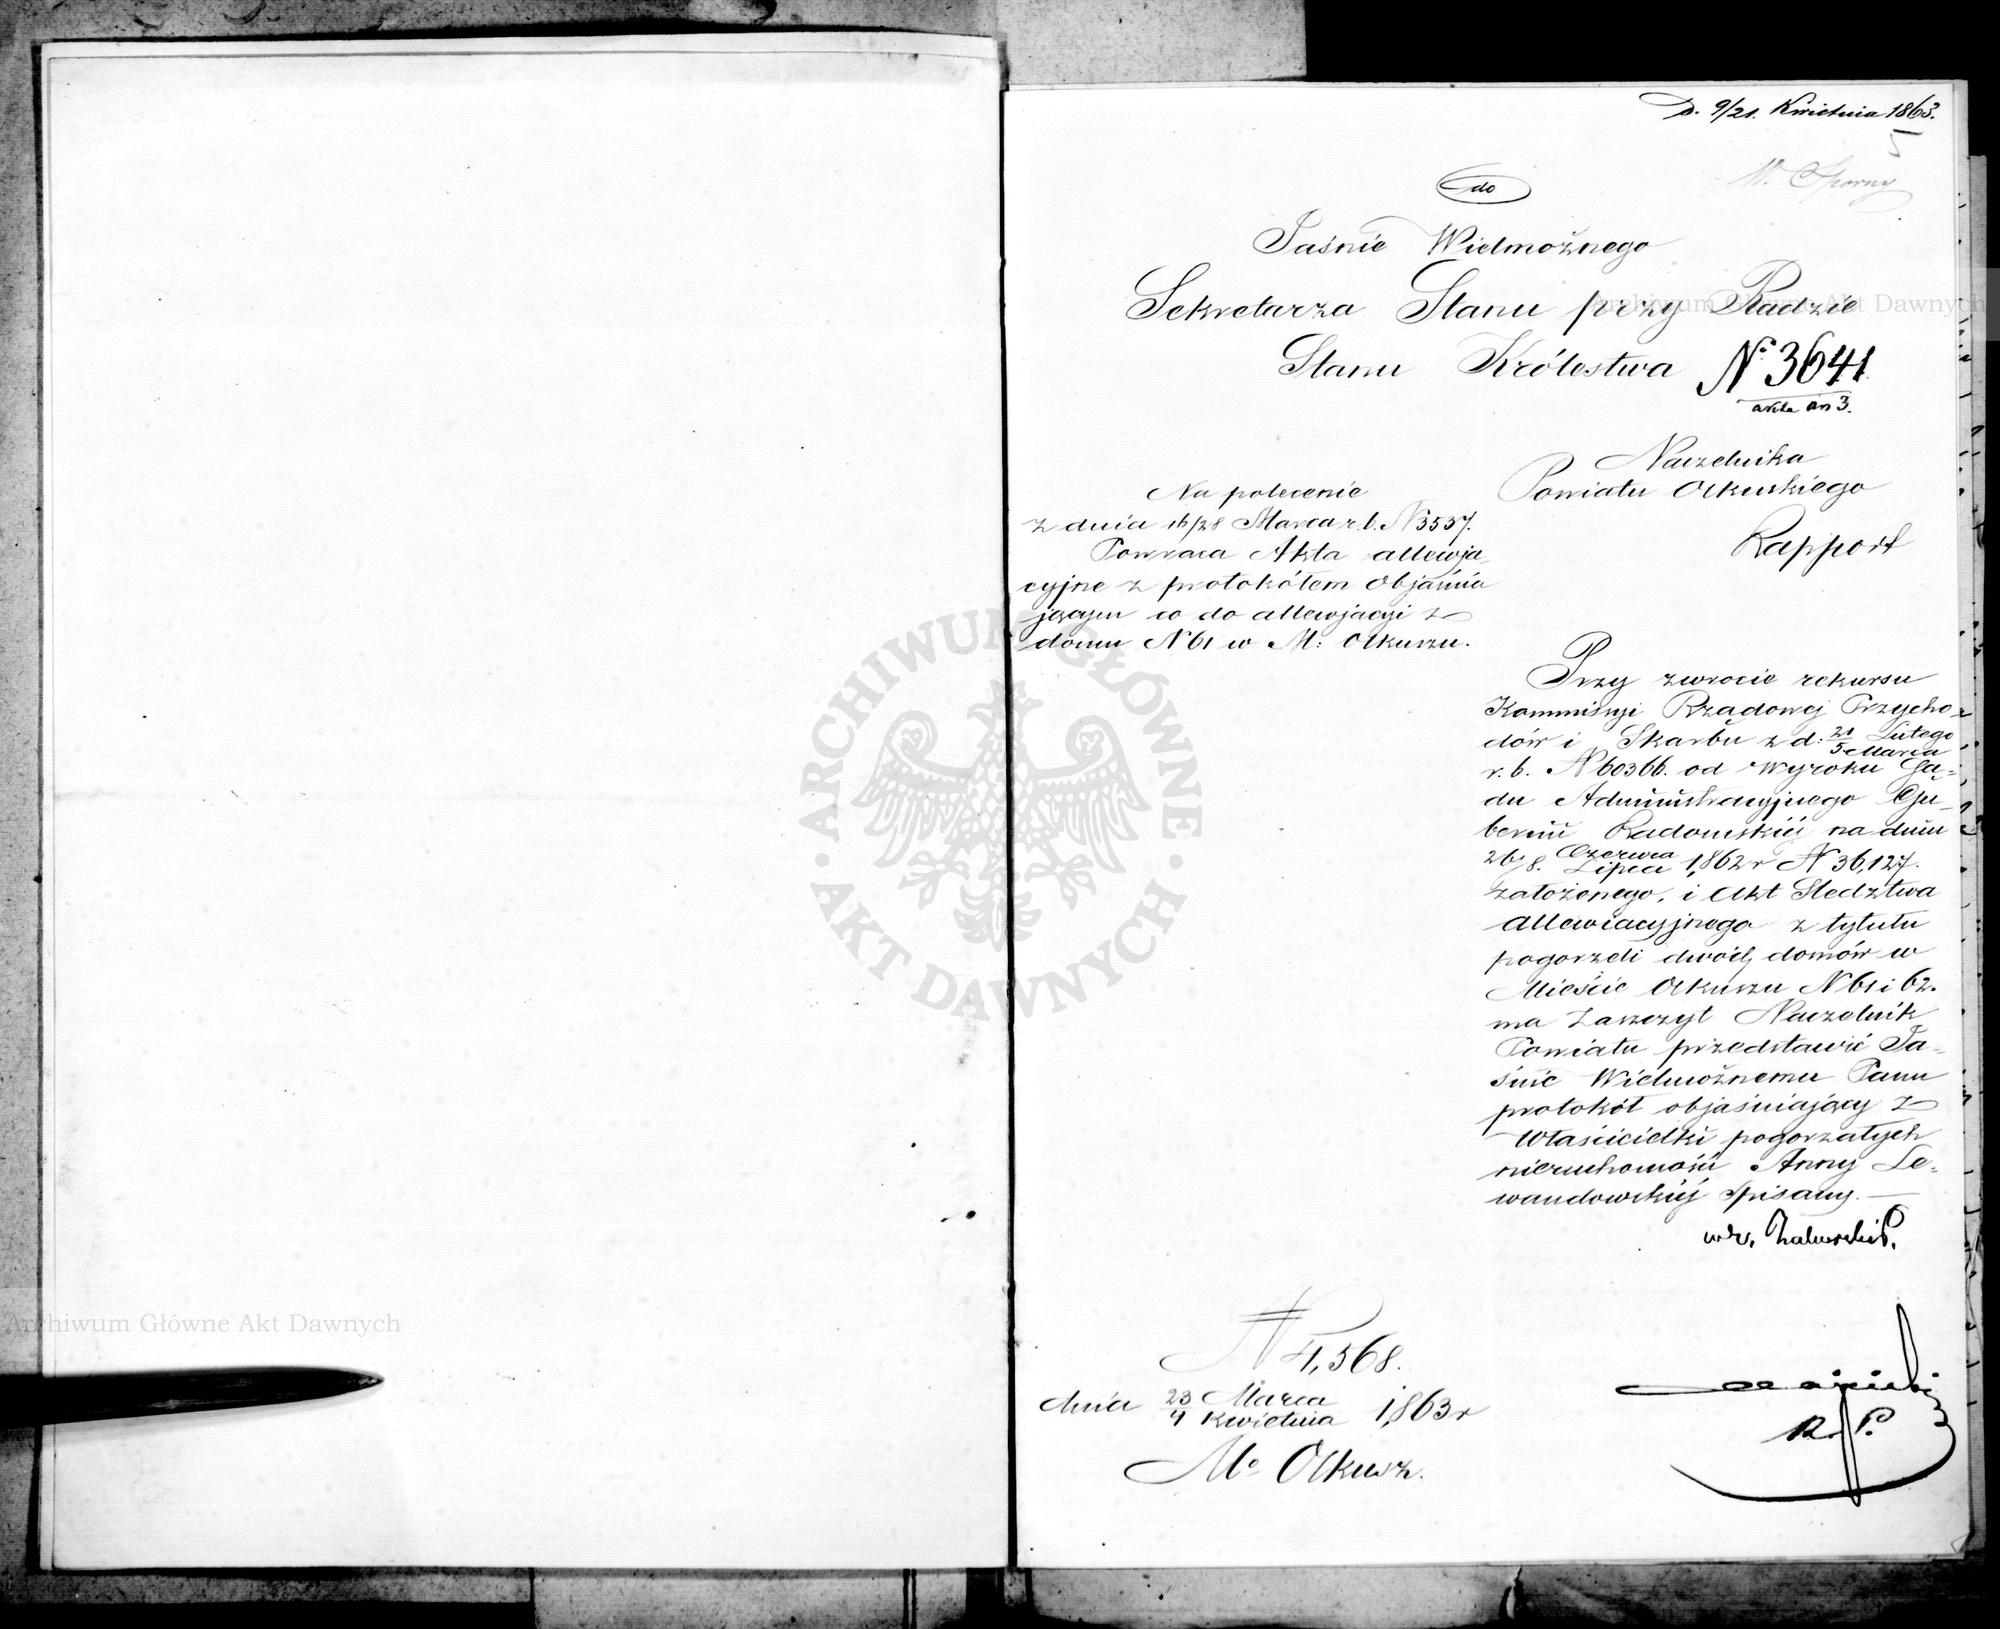 D. 9/21. Kwietnia 1863.
5
W. Sporny
do
Jaśnie Wielmożnego
Sekretarza Stanu przy Radzie
Stanu Królestwa
№ 3641
akta 3.
Naczelnika
Powiatu Olkuskiego
Rapport
Na polecenie
z dnia 16/28 Marca r. b. N 3537.
Powraca Akta allewja
cyjne z protokółem objaśnia
jącym co do allewjacyi z
domu N 61 w M: Olkuszu.
Przy zwrocie rekursu
Kommisyi Rządowej Przycho-
dów i Skarbu z d: 21/5 Lutego/Marca
r. b. N 60366. od Wyroku Są-
du Administracyjnego Gu-
bernii Radomskiéj na dniu
26/8. Czerwca/Lipca 1862 r N 36,127.
założonego, i Akt Sledztwa
Allewiacyjnego z tytułu
pogorzeli dwóch domów w
Mieście Olkuszu N 61 i 62.
ma Zaszczyt Naczelnik
Powiatu przedstawić Ja-
śnie Wielmożnemu Panu
protokół objaśniający z
Właścicielki pogorzałych
nieruchomości Anny Le-
wandowskiéj spisany. —
N 4,568.
dnia 23/4 Marca/Kwietnia 1863 r
Mo Olkusz.
R. P.
Archiwum Główne Akt Dawnych
Archiwum Główne Akt Dawnych
ARCHIWUM GŁÓWNE
AKT DAWNYCH